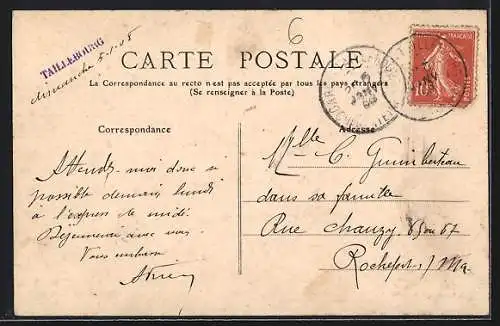 6
TAILLEBOURG
dimanche 5-1-08
CARTE POSTALE
La Correspondance au recto n'est pas acceptée par tous les pays étrangers
(Se renseigner à la Poste)
Correspondance
Adresse
Attendez-moi donc si
possible demain lundi
à l'express de midi.
Déjeunerai avec vous.
Vous embrasse
Mlle C. Guimberteau
dans sa famille
Rue Chanzy 65 ou 67
Rochefort s/ Mer
10
POSTES